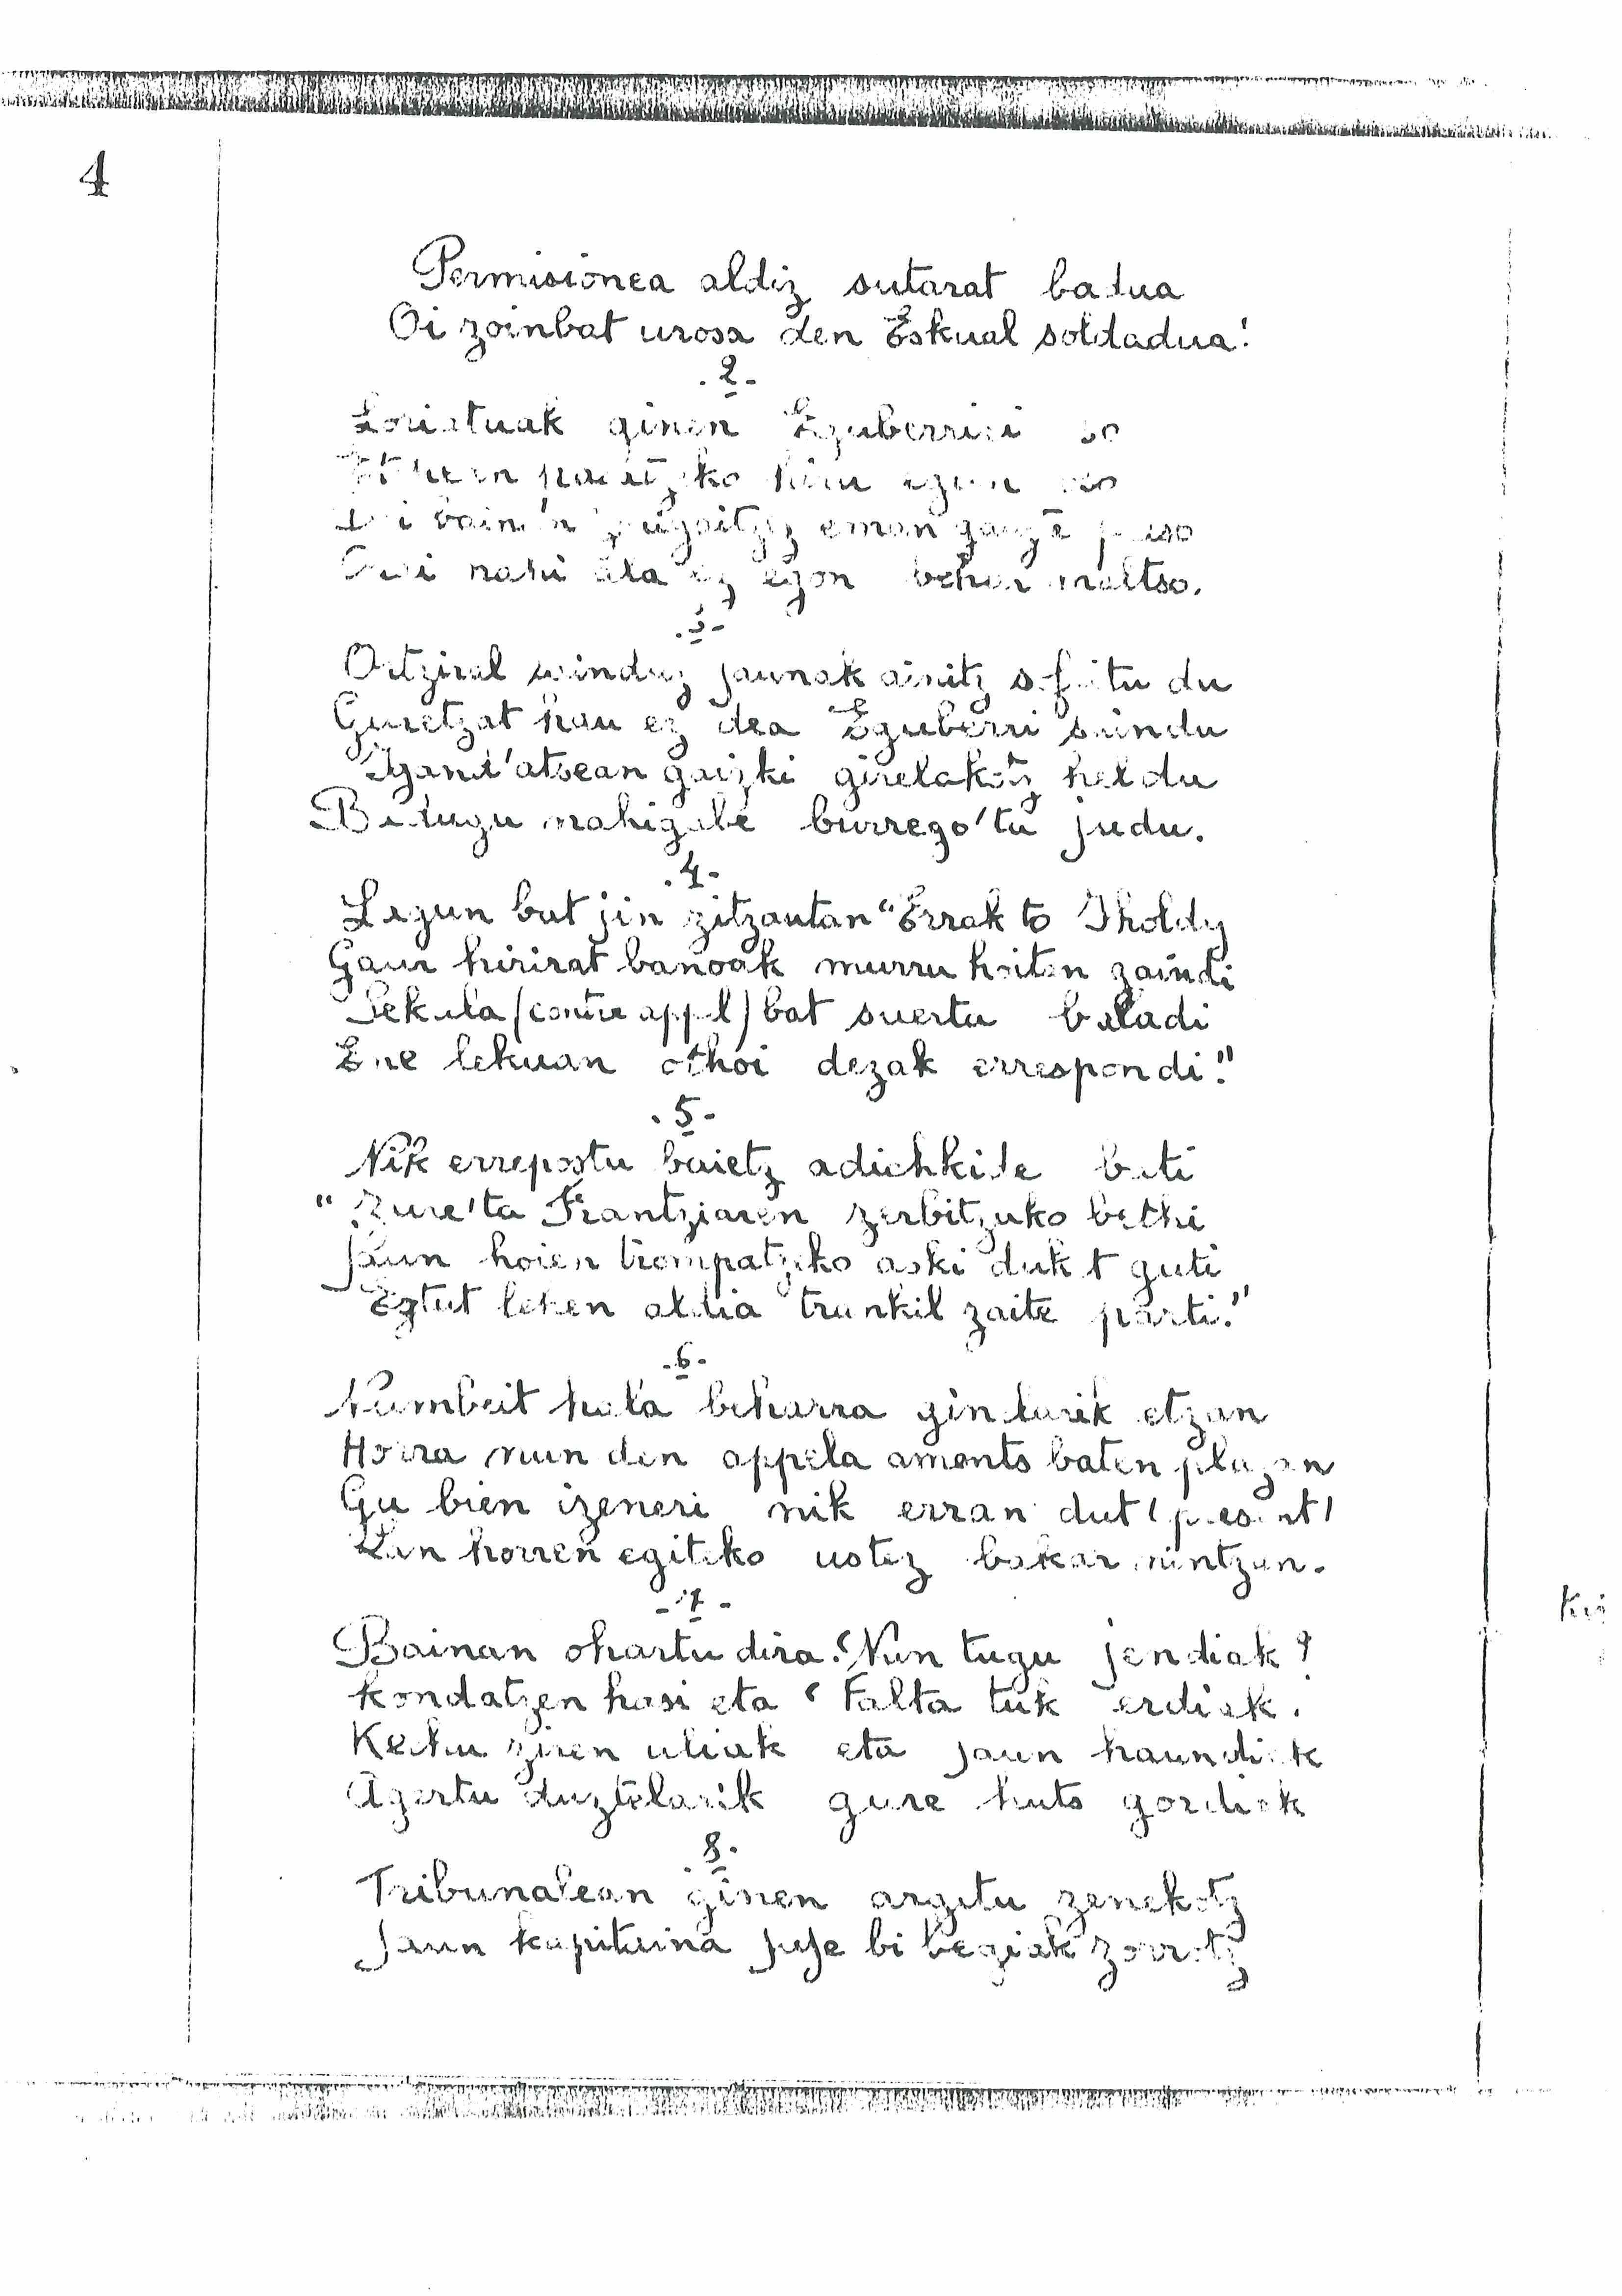 4
Permisionea aldiz sutarat badua
Oi zoinbat urosa den Eskual soldadua!
. 2 -
Loriatuak ginen Eguberrieri so
egun
eman
nahi ala ez egon behar maltso.
. 3 -
Ortziral sainduz jaunak ainitz sofritu du
Guretzat hau ez dea Eguberri saindu
Igand'atsean gaizki girelakotz heldu
Baitugu nahigabe burrego'ta judu.
. 4 -
Lagun bat jin zitzautan "Errak to Iholdy
Gaur hirirat banoak murru hoitan zaindi
Sekula (contre appel) bat suertu baladi
Ene lekuan othoi dezak errespondi."
. 5 -
Nik errepostu baietz adichkide bati
" Zure'ta Frantziaren zerbitzuko bethi
Jaun hoien trompatzeko aski dukat guti
Eztut lehen aldia trunkil zaite parti."
. 6 -
Numbeit hala beharra gindarik etzan
Horra nun den appela amonts baten plazan
Gu bien izeneri nik erran dut ' present '
Lan horren egiteko ustez bakar nintzan.
- 7 -
Bainan ohartu dira. "Nun tugu jendiak ?
Kondatzen hasi eta " Falta tuk erdiak.
Kechu ziren uliak eta jaun haundiak
Agertu duztelarik gure huts gordiak
. 8 -
Tribunalean ginen argitu zenekotz
Jaun kapitaina juje bi begiak zorrotz